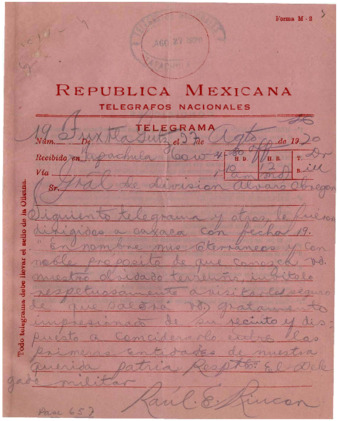 Forma M-2
AGO 27 1920
REPUBLICA MEXICANA
TELEGRAFOS NACIONALES
TELEGRAMA
Núm. 19 De Tuxtla Gutz el 27 Agto de 1920
Recibido en Tapachula
H. D. H. R. T.
Vía
Gral de division Alvaro Obregon
Siguiente telegrama y otros le fueron
dirigidos a oaxaca con fecha 19.
"En nombre mis coterraneos y con
noble proposito de que conozca Ud
nuestro olvidado terruño invitole
respetuosamente a visitarlo seguro
de que saldra Ud gratamente
impresionado de su recinto y dis
puesto a considerarlo entre las
primeras entidades de nuestra
querida patria Respte. El Dele
gado militar
Raúl E. Rincon
Todo telegrama debe llevar el sello de la Oficina.